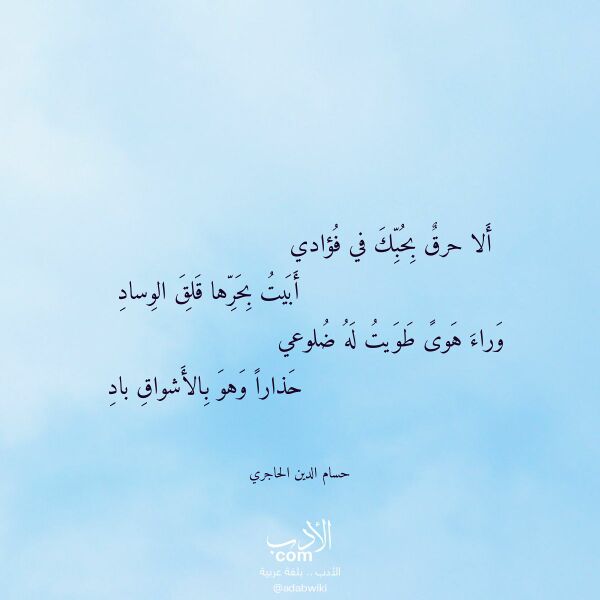 أَلا حرقٌ بِحُبِّكَ في فُؤادي
أَبَيتُ بِحَرِّها قَلِقَ الوِسادِ
وَراءَ هَوىً طَوَيتُ لَهُ ضُلوعي
حَذاراً وَهوَ بِالأَشواقِ بادِ
حسام الدين الحاجري
الأدب
.com
الأدب .. بلغة عربية
@adabwiki